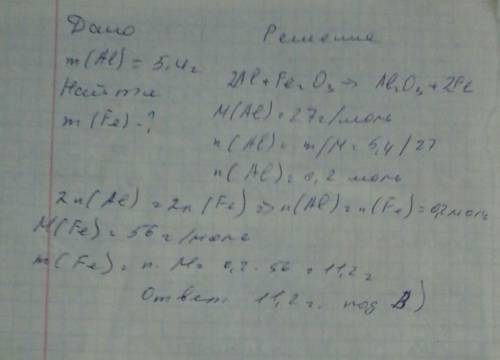 Дано
Решение
m(Al) = 5,4 г
2Al + Fe₂O₃ → Al₂O₃ + 2Fe
Найти
M(Al) = 27 г/моль
m(Fe) - ?
n(Al) = m/M = 5,4/27
n(Al) = 0,2 моль
2n(Al) = 2n(Fe) => n(Al) = n(Fe) = 0,2 моль
M(Fe) = 56 г/моль
m(Fe) = n · M = 0,2 · 56 = 11,2 г
Ответ 11,2 г. под В)